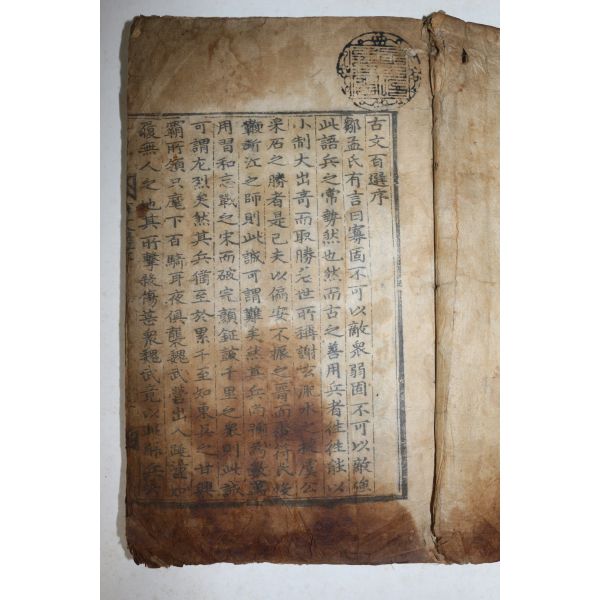 古文百選序
鄒孟氏有言曰寡固不可以敵衆弱固不可以敵強
此語兵之常勢然也然而古之善用兵者往往能以
小制大出奇而取勝若世所稱謝玄淝水之捷虞公
采石之勝者是已夫以偏安不振之晋而 苻氏
浙江之師則此誠可謂難矣然其兵尚
用習和忘戰之宋而破完顔 千里之衆則此誠
可謂尤烈矣然其兵猶至於累千至如東吳之甘興
覇所領只麾下百騎耳夜俱襲魏武營出入
無人之地其所擊殺傷甚衆魏武 以 兵